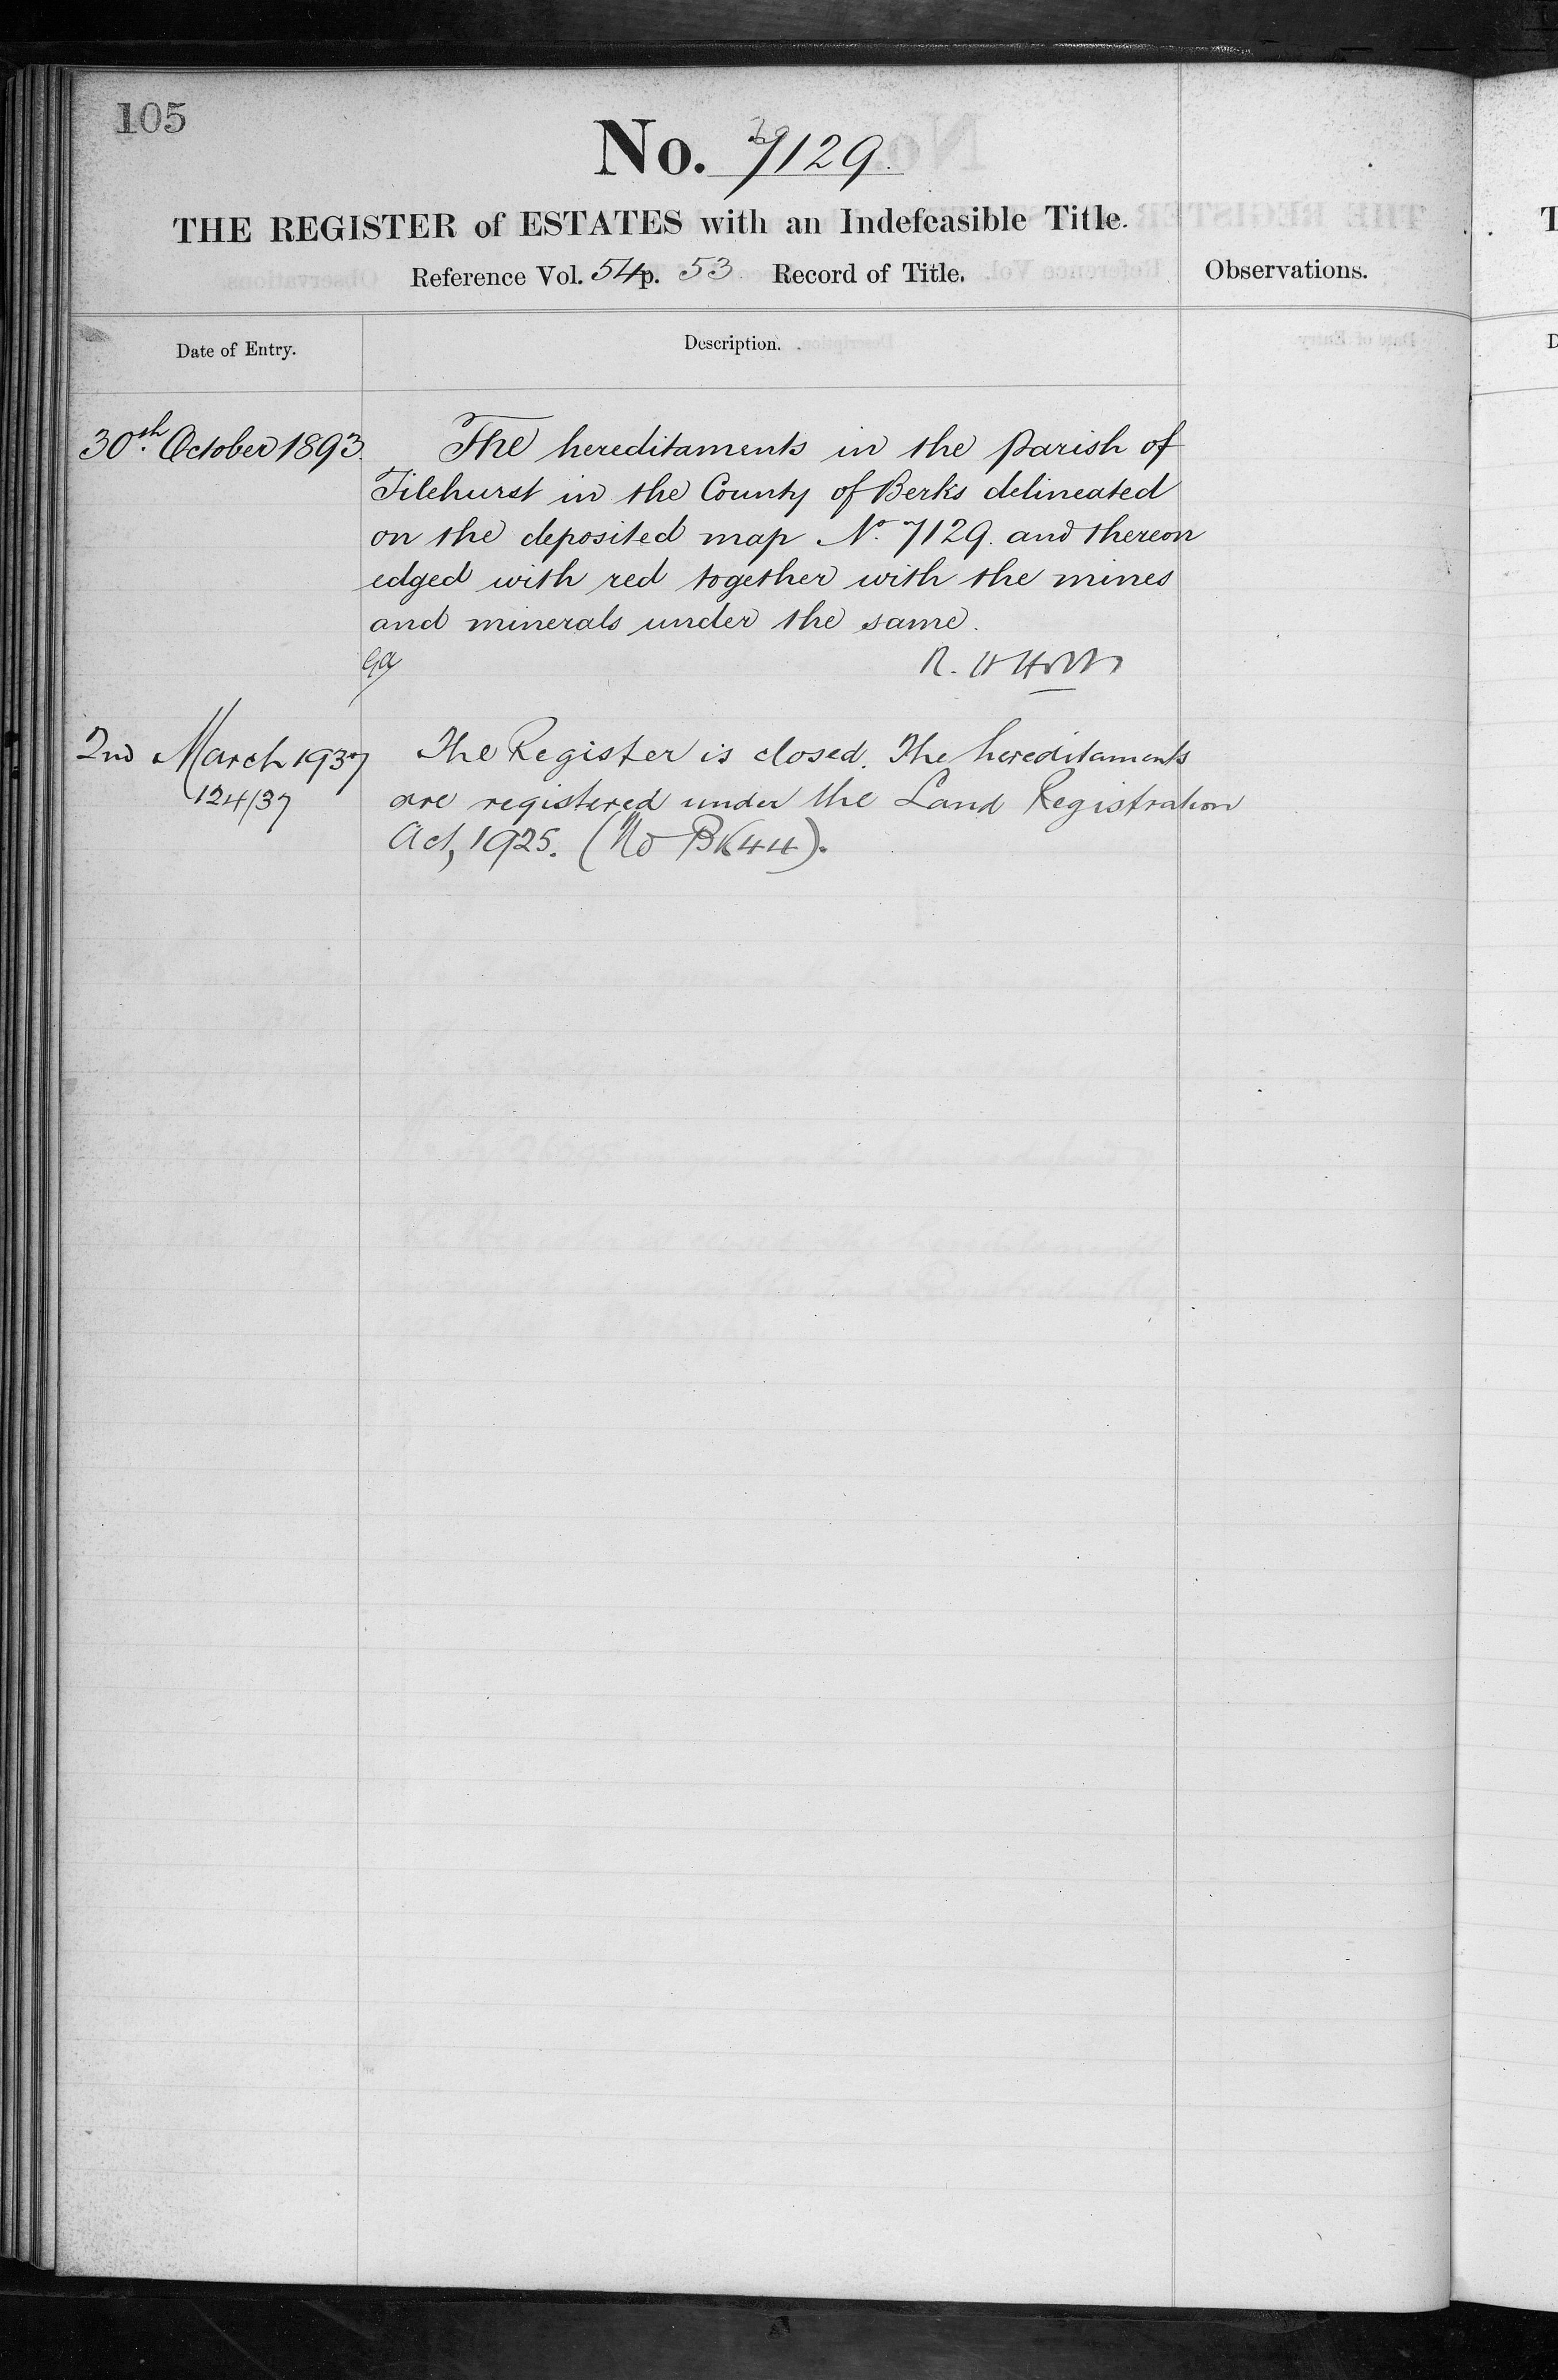 105
No. 7129.
THE REGISTER of ESTATES with an Indefeasible Title.
Reference Vol. 54 p. 53 Record of Title.
Observations.
Date of Entry.
Description.
30th. October 1893.
The hereditaments in the parish of
Tilehurst in the County of Berks delineated
on the deposited map No. 7129. and thereon
edged with red together with the mines
and minerals under the same.
R.
2nd March 1937
The Register is closed. The hereditaments
124/37
are registered under the Land Registration
Act, 1925. (No BK44).